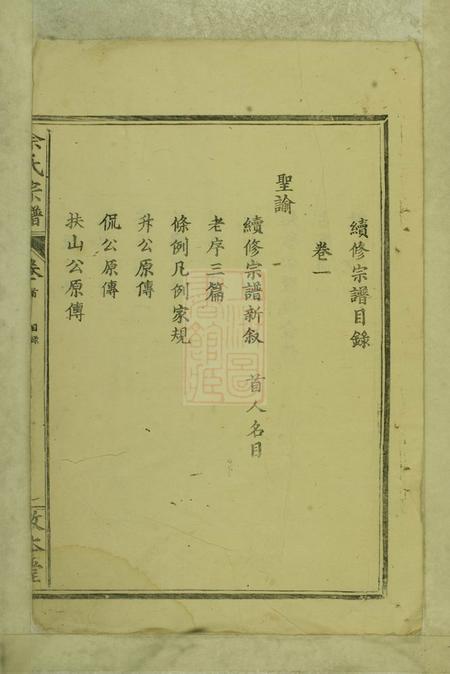 續修宗譜目錄
卷一
聖諭
續修宗譜新叙 首人名目
老序三篇
條例凡例家規
升公原傳
侃公原傳
扶山公原傳
余氏宗譜 卷首 目錄